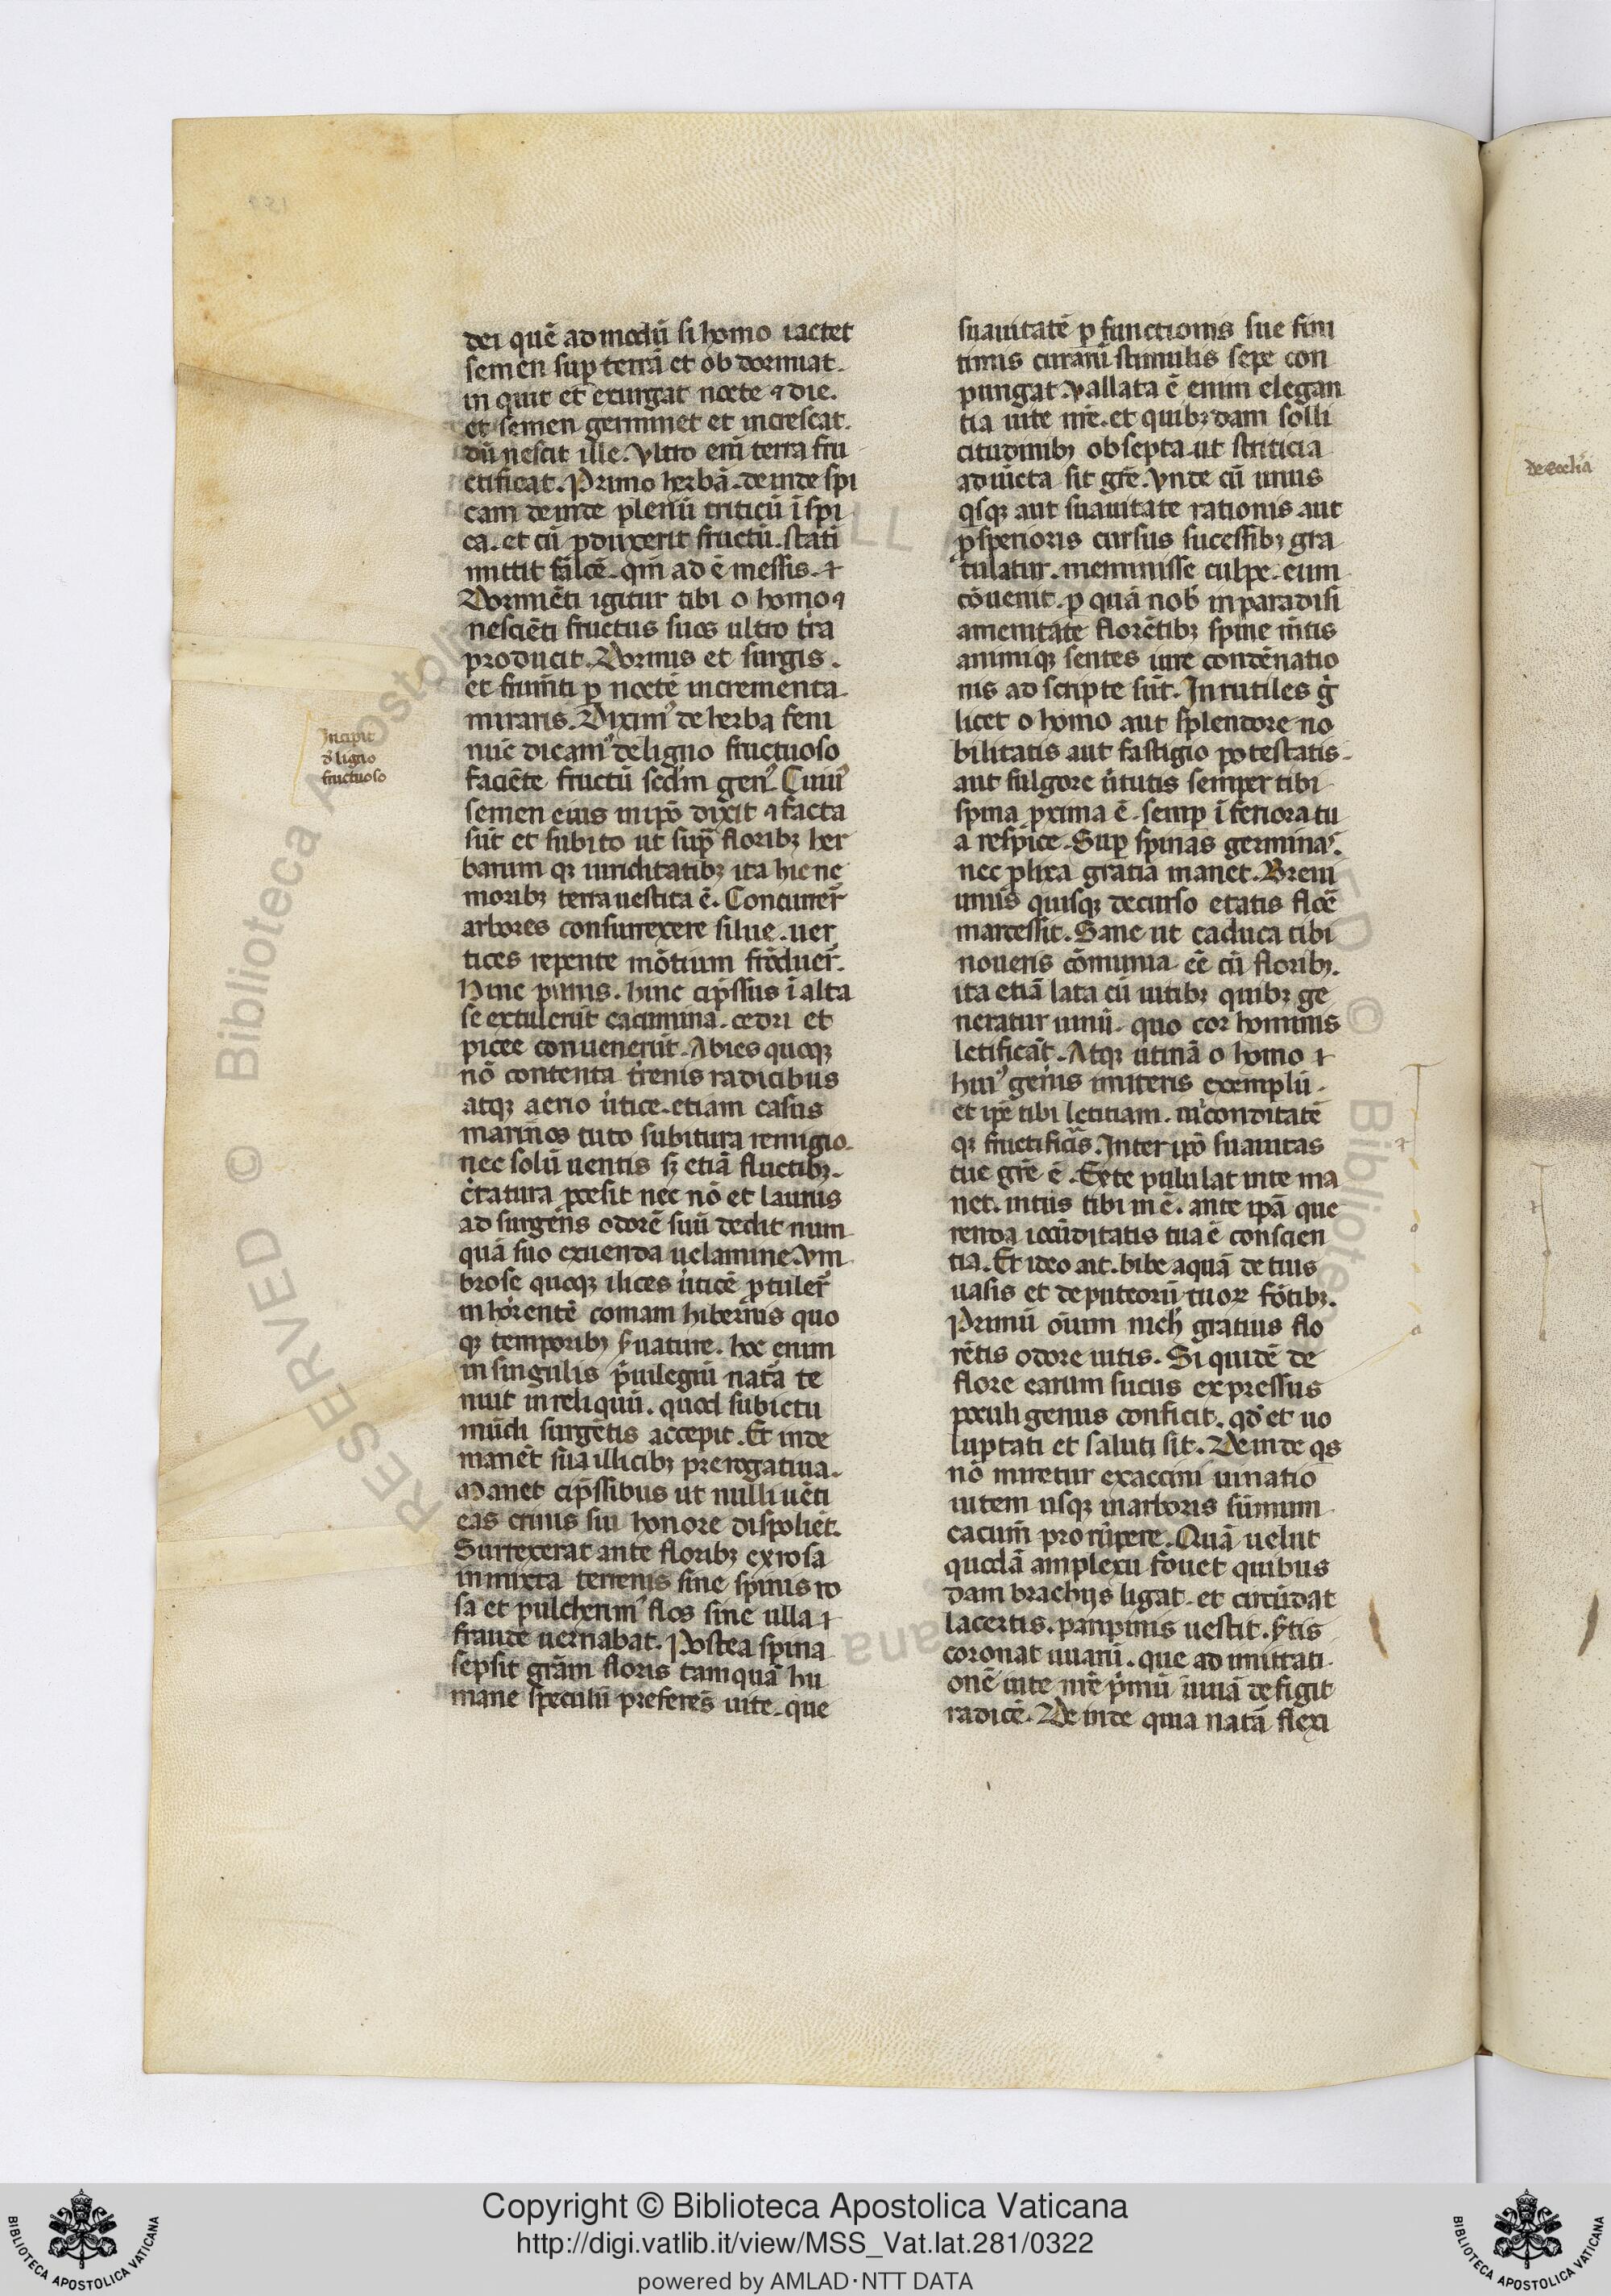 dei quē ad modū si homo iactet
semen sup terrā et ob dormiat.
in quit et exurgat nocte ⁊ die.
et semen germinet et increscat.
dū nescit ille. Vltro enī terra fru
ctificat. Primo herbā. deinde spi
cam deinde plenū triticū ī spi
ca. et cū pduxerit fructū. statī
mittit falcē. qm̄ ad ē messis. ⁊
Dormiēti igitur tibi o homo ⁊
nesciēti fructus suos ultro tra
producit. Dormis et surgis.
et frum̄ti p noctē incrementa
miraris. Diximꝰ de herba feni
nūc dicamꝰ de ligno fructuoso
faciēte fructū scd̄m genꝰ. Cuiuꝰ
semen eius in ipō dixit ⁊ facta
sūt et subito ut sup̄ floribꝫ her
barum qꝫ iuriditatibꝫ ita hic ne
moribꝫ terra uestita ē. Concurrer̄
arbores consurrexere silue. uer
tices repente mōtium frōduer̄.
Hinc pinus. hinc cip̄ssus ī alta
se extulerūt cacumina. cedri et
picee conuenerūt. Abies quoqꝫ
nō contenta t̄renis radicibus
atqꝫ aerio ūtice. etiam casus
marinos tuto subitura remigio.
nec solū uentis sꝫ etiā fluctibꝫ.
c̄tatura ꝓcesit nec nō et laurus
ad surgēns odorē suū dedit num
quā suo exuenda uelamine. Vm
brose quoqꝫ ilices ūticē ꝓtuler̄
in horentē comam hibernis quo
qꝫ temporibꝫ s̄uature. hoc enim
in singulis p̄uilegiū natā te
nuit in reliquū. quod sub ictu
mūdi surgētis accepit. Et inde
manēt sua illicibꝫ prerogatiua.
Manet cip̄ssibus ut nulli uēti
eas crinis sui honore dispoliēt.
Surrexerat ante floribꝫ ex rosa
in mixta terrenis sine spinis ro
sa et pulcherimꝰ flos sine ulla ⁊
fraude uernabat. Postea spina
sepsit grām floris tamquā hu
mane speculū preferēs uite. que
Incipit
d̄ ligno
fructuoso
suauitatē p functionis sue fini
timis curarū stimulis sepe con
pungat. Vallata ē enim elegan
tia uite nr̄e. et quibꝫdam solli
citudinibꝫ obsepta. ut striticia
ad iūcta sit gr̄e. Vnde cū unus
qsqꝫ aut suauitate rationis aut
ꝓsperioris cursus sucessibꝫ gra
tulatur. meminisse culpe. eum
cōuenit. p quā nob̄ in paradisi
amenitate florētibꝫ spine m̄tis
animiqꝫ sentes iure condēnatio
nis ad scripte sūt. In rutiles ḡ
licet o homo aut splendore no
bilitatis aut fastigio potestatis.
aut fulgore ūtutis semper tibi
spina proxima ē. semp ī feriora tu
a respice. Sup spinas germinas.
nec ꝓlixa gratia manet. Breui
unus quisqꝫ decurso etatis flōē
marcessit. Sane ut caduca tibi
noueris cōmunia eē cū floribꝫ.
ita etiā lata cū uitibꝫ quibꝫ ge
neratur uinū. quo cor hominis
letificāt. Atqꝫ utinā o homo ⁊
huiꝰ generis imiteris exemplū.
et ip̄e tibi letitiam. iucunditatē
qꝫ fructificās. In te ip̄o suauitas
tue gr̄e ē. Ex te pululat in te ma
net. intus tibi in ē. ante ipā que
renda iocūditatis tua ē conscien
tia. Et ideo ait. bibe aquā de tuis
uasis et de puteorū tuoꝝ fōtibꝫ.
Primū oīum nich̄ gratius flo
rētis odore uitis. Si quidē de
flore earum sucus expressus
poculi genus conficit. qd̄ et uo
luptati et saluti sit. Deinde qs
nō miretur ex accini uinatio
uitem usqꝫ in arboris sūmum
cacum̄ prorūpere. Quā uelut
quodā amplexu fouet quibus
dam brachijs ligat. et circūdat
lacertis. panpinis uestit. s̄tis
coronat uuarū. que ad imittati
onē uite nr̄e p̄mū uiuā defigit
radicē. Deinde quia natā flexi
de ecclīa
Copyright © Biblioteca Apostolica Vaticana
http://digi.vatlib.it/view/MSS_Vat.lat.281/0322
powered by AMLAD·NTT DATA
BIBLIOTECA APOSTOLICA VATICANA
BIBLIOTECA APOSTOLICA VATICANA